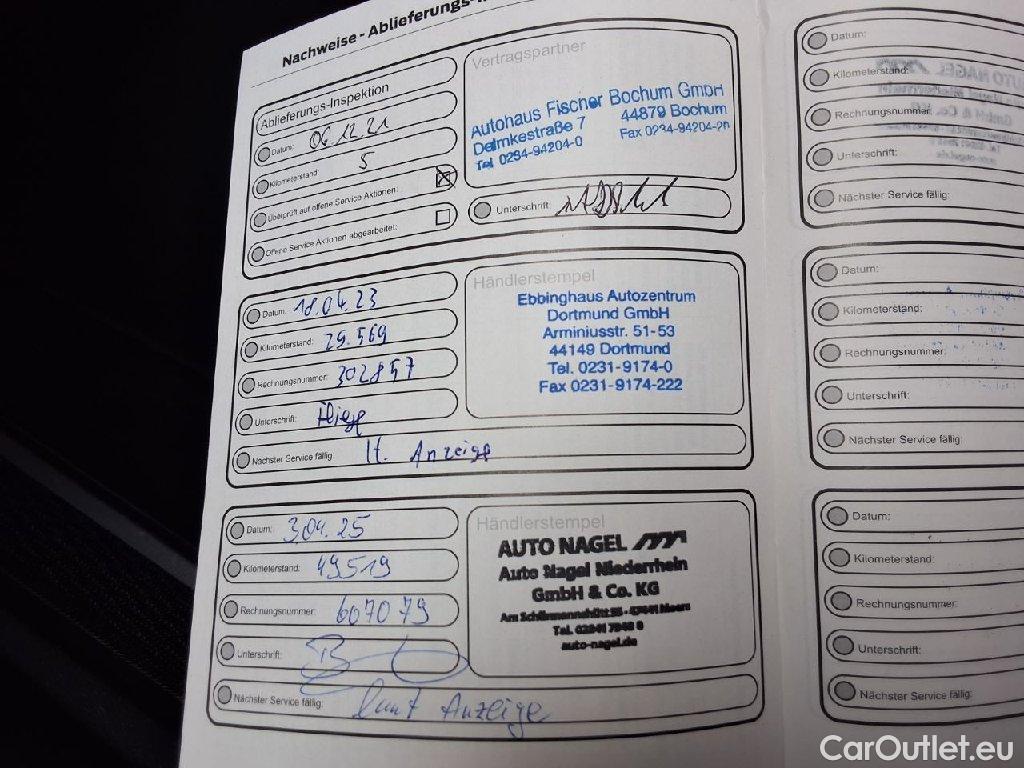 Nachweise - Ablieferungs-
Ablieferungs-Inspektion
Datum: 06.12.21
Kilometerstand: 5
Überprüft auf offene Service Aktionen:
Offene Service Aktionen abgearbeitet:
Vertragspartner
Autohaus Fischer Bochum GmbH
Delmkestraße 7 44879 Bochum
Tel 0234-94204-0 Fax 0234-94204-
Unterschrift:
Datum: 18.04.23
Kilometerstand: 29.569
Rechnungsnummer: 302857
Unterschrift:
Nächster Service fällig: lt. Anzeige
Händlerstempel
Ebbinghaus Autozentrum
Dortmund GmbH
Arminiusstr. 51-53
44149 Dortmund
Tel. 0231-9174-0
Fax 0231-9174-222
Datum: 3.04.25
Kilometerstand: 49519
Rechnungsnummer: 607079
Unterschrift:
Nächster Service fällig: laut Anzeige
Händlerstempel
AUTO NAGEL
Auto Nagel Niederrhein
GmbH & Co. KG
auto-nagel.de
Datum:
Kilometerstand:
Rechnungsnummer:
Unterschrift:
Nächster Service fällig:
Datum:
Kilometerstand:
Rechnungsnummer:
Unterschrift:
Nächster Service fällig:
Datum:
Kilometerstand:
Rechnungsnummer:
Unterschrift:
Nächster Service fällig:
CarOutlet.eu